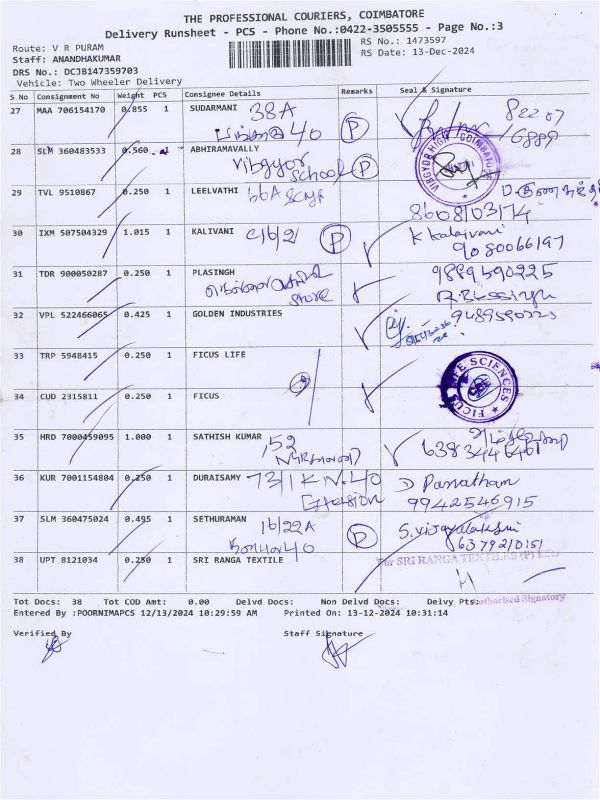 THE PROFESSIONAL COURIERS, COIMBATORE
Delivery Runsheet - PCS - Phone No.:0422-3505555 - Page No.:3
Route: V R PURAM
RS No.: 1473597
Staff: ANANDHAKUMAR
RS Date: 13-Dec-2024
DRS No.: DCJB147359703
Vehicle: Two Wheeler Delivery
S No Consignment No Weight PCS Consignee Details Remarks Seal & Signature
27 MAA 706154170 0.855 1 SUDARMANI 38A 82287
40 P 16889
28 SLM 360483533 0.560 1 ABHIRAMAVALLY
Vibgyor School P
29 TVL 9510867 0.250 1 LEELVATHI
8608103174
30 IXM 507504329 1.015 1 KALIVANI C/6/2/ P K Kalaivani
9080066197
31 TDR 900050287 0.250 1 PLASINGH 9899590225
Store
32 VPL 522466065 0.425 1 GOLDEN INDUSTRIES
33 TRP 5948415 0.250 1 FICUS LIFE
FICUS LIFE SCIENCES
34 CUD 2315811 0.250 1 FICUS
35 HRD 7000459095 1.000 1 SATHISH KUMAR 152
6383446461
36 KUR 7001154804 0.250 1 DURAISAMY 73/1 K.N.40
Extension
9942546915
37 SLM 360475024 0.495 1 SETHURAMAN 16/22A S. Vijayalakshmi
40 P 6379210151
38 UPT 8121034 0.250 1 SRI RANGA TEXTILE
For SRI RANGA TEXTILES (P) LTD
Authorised Signatory
Tot Docs: 38 Tot COD Amt: 0.00 Delvd Docs: Non Delvd Docs: Delvy Pts:
Entered By :POORNIMAPCS 12/13/2024 10:29:59 AM Printed On: 13-12-2024 10:31:14
Verified By Staff Signature